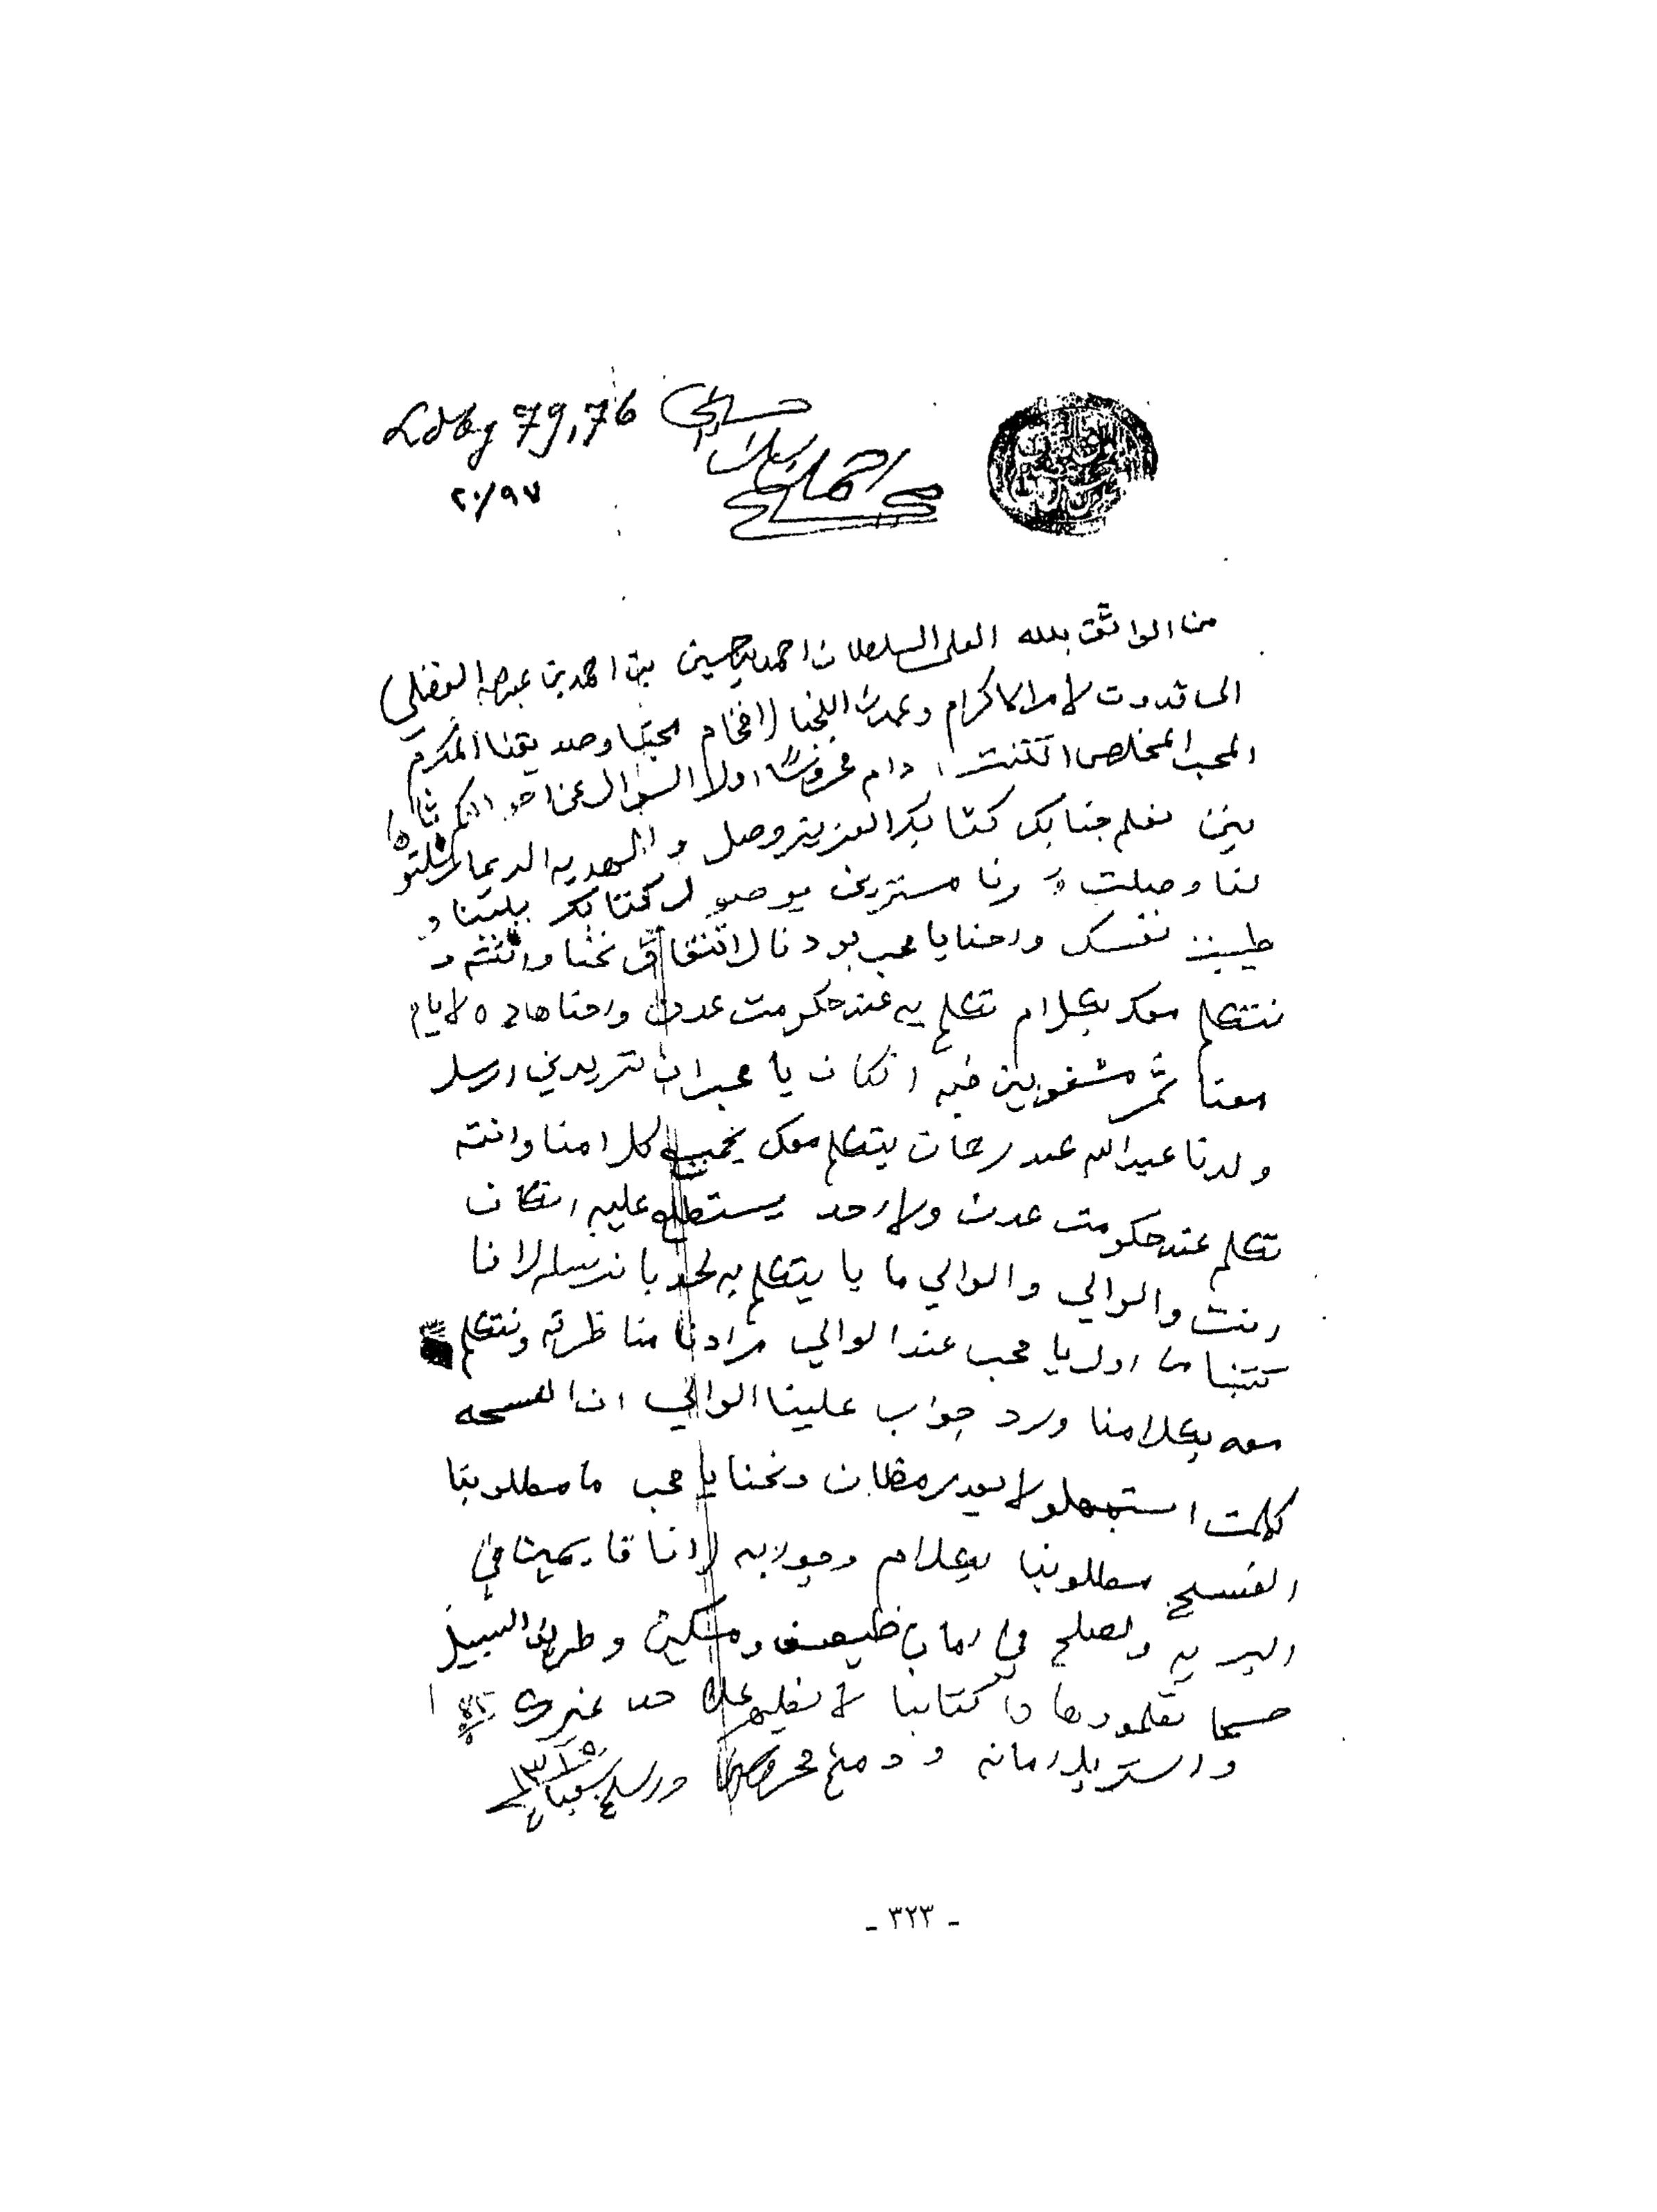 Ldbg 79,76
٢٠/٩٧
من الواثق بالله العلي السلطان احمد بن حسين بن احمد بن عبدالله الفضلي
الى قدوت لامرا لاكرام وعمدت اللنجبا لافخام محبنا وصديقنا المكرم
المحب المخلص دام محروسًا اولا السوال عن احوالكم
نعلم جنابك كتابك العزيز وصل والهديه الديما رسلتو
لنا وصلت ونا مسترين بوصول كتابكر بليتنا و
طيبت نفسك واحنا يا محب بودنا لاتفاق نحنا وانته و
نتكلم معك بكلام تكلم به عند حكومت عدن واحنا هاده لايام
معنا مشغوبين فيه انكان يا محب ان تريدني ارسل
ولدنا عبدالله عند رحان يتكلم معك يخبب كلامنا وانته
تكلم عند حكومت عدن ولا احد يستطلع عليه انكان
انت والوالي والوالي ما يا يتكلم به لحد با نرسله لانا
كتبنا من اول يا محب عند الوالي مرادنا مناظرته ونتكلم
معه بكلامنا ورد جواب علينا الوالي ان الفسحه
كملت استمهلو لا بعد رمظان ونحنا يا محب ما مطلوبنا
الفسح مطلوبنا بكلام وجوابه لانا قايمين في
البريه ولصلح في امان ظعيف ومسكين وطريق السبيل
حسبما تعلمو وهاذا كتابنا لا عليه حد غيرك
واستر بلامانه ودمتم محروسين
١٣١٥
ـ ٣٢٣ ـ